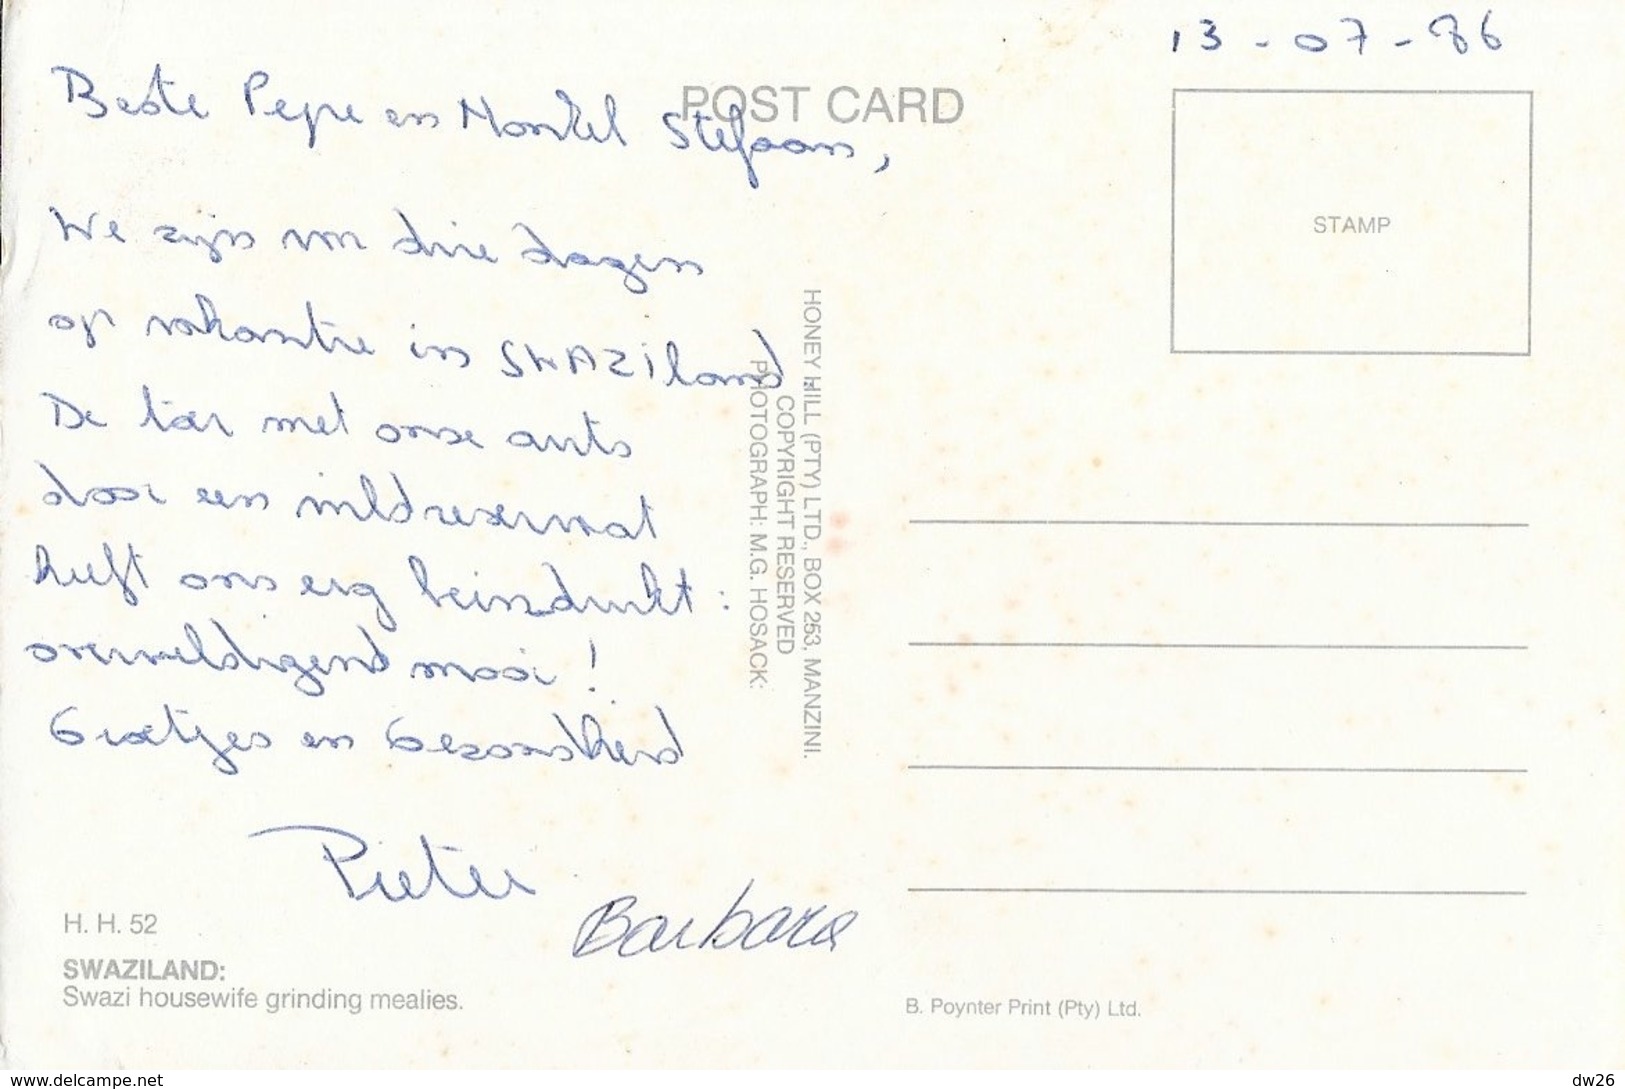 13-07-86
POST CARD
Beste Pepe en Monkel Stefaan,
STAMP
We zijn nu drie dagen
op vakantie in SWAZiland.
De toer met onze auto
door een wildreservaat
heeft ons erg beïndrukt :
overweldigend mooi !
Groetjes en Gezondheid
Pieter
Barbara
HONEY HILL (PTY) LTD., BOX 253, MANZINI.
COPYRIGHT RESERVED
PHOTOGRAPH: M.G. HOSACK:
H. H. 52
SWAZILAND:
Swazi housewife grinding mealies.
B. Poynter Print (Pty) Ltd.
www.delcampe.net
dw26